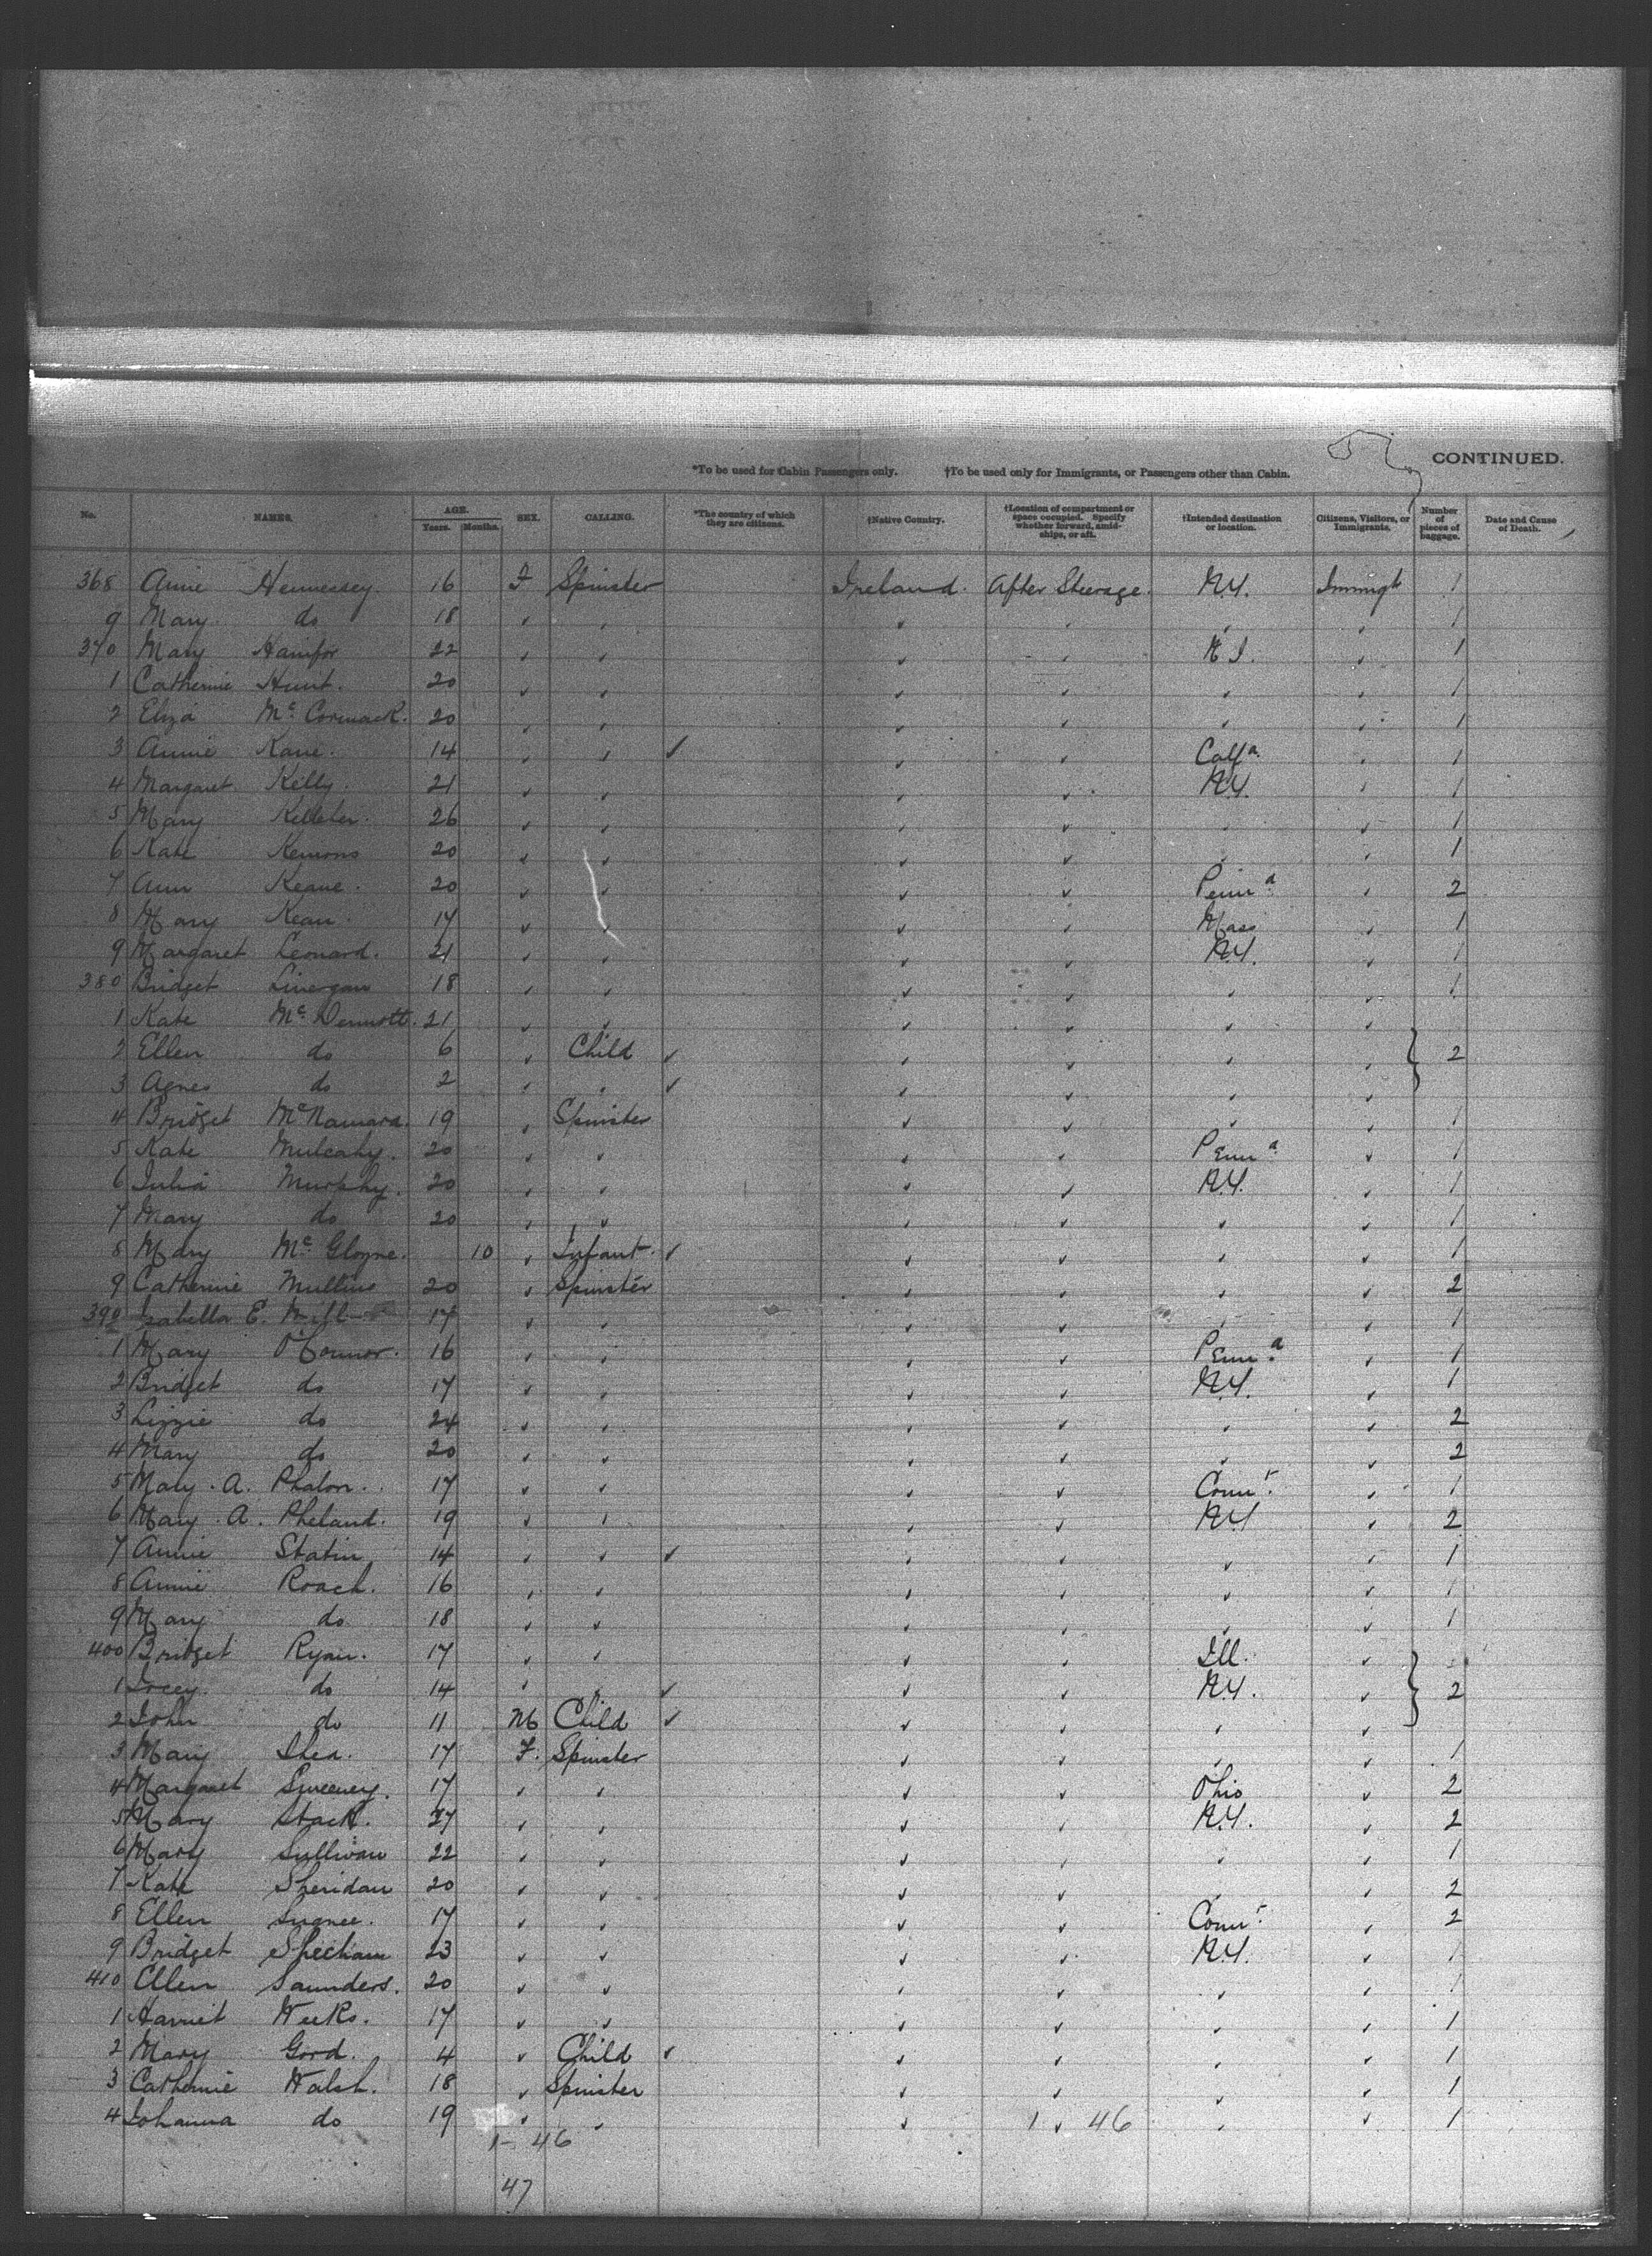 *To be used for Cabin Passengers only. †To be used only for Immigrants, or Passengers other than Cabin. CONTINUED.
No. NAMES. AGE. Years. Months. SEX. CALLING. *The country of which they are citizens. †Native Country. †Location of compartment or space occupied. Specify whether forward, amidships, or aft. †Intended destination or location. Citizens, Visitors, or Immigrants. Number of pieces of baggage. Date and Cause of Death.
368 Annie Hennessey. 16 F Spinster Ireland. After Steerage. N.Y. Immigt 1
9 Mary do 18 1
370 Mary 22 1
1 Catherine Hunt. 20 1
2 Eliza Mc Cormack. 20 1
3 Annie Kane. 14 ✓ Calfa 1
4 Margaret Kelly. 21 N.Y. 1
5 Mary Kelleher. 26 1
6 Kate 20 1
7 Ann Keane. 20 Penna 2
8 Mary Kean. 17 Mass 1
9 Margaret Leonard. 21 N.Y. 1
380 Bridget 18 1
1 Kate Mc Dermott. 21
2 Ellen do 6 Child ✓ } 2
3 Agnes do 2 ✓
4 Bridget McNamara. 19 Spinster 1
5 Kate Mulcahy. 20 Penna 1
6 Julia Murphy. 20 N.Y. 1
7 Mary do 20 1
8 Mary Mc Gloyne. 10 Infant. ✓ 1
9 Catherine Mullins 20 Spinster 2
390 Isabella E. Mill 17 1
1 Mary O'Connor. 16 Penna 1
2 Bridget do 17 N.Y. 1
3 Lizzie do 24 2
4 Mary do 20 2
5 Mary A. Phalon. 17 Connt. 1
6 Mary A. Pheland. 19 N.Y 2
7 Annie Statin 14 ✓ 1
8 Annie Roach. 16 1
9 Mary do 18 1
400 Bridget Ryan. 17 Ill.
1 do 14 ✓ N.Y. } 2
2 John do 11 M Child ✓
3 Mary Shea. 17 F. Spinster 1
4 Margaret Sweeney. 17 Ohio 2
5 Mary Stack. 27 N.Y. 2
6 Mary Sullivan 22 1
7 Kate Sheridan 20 2
8 Ellen 17 Connt. 2
9 Bridget 23 N.Y. 1
410 Ellen Saunders. 20 1
1 Harriet Weeks. 17 1
2 Mary Gord. 4 Child ✓ 1
3 Catherine Walsh. 18 Spinster 1
4 Johanna do 19 1 46 1
1- 46
47